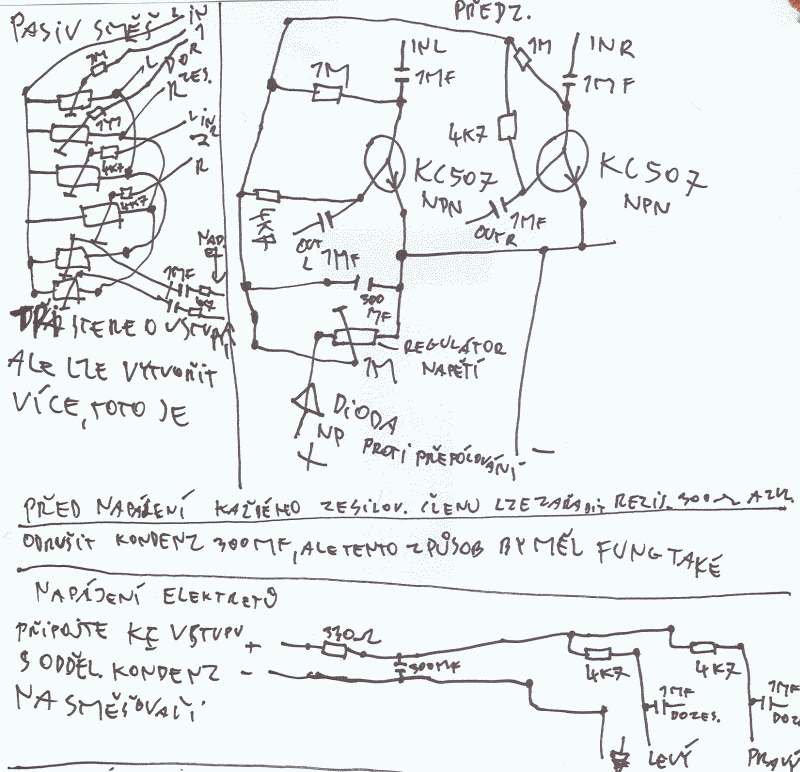 PASIV SMĚŠ
L IN
1
R
1M
L DO
R ZES.
1M
LIN
2
R
4K7
4K7
NAP.
1MF
4K7
TŘI STEREO VSTUPY,
ALE LZE VYTVOŘIT
VÍCE, TOTO JE
PŘEDZ.
INL
1MF
1M
1M
INR
1MF
4K7
KC507
NPN
KC507
NPN
4K7
OUT L
1MF
OUT R
1MF
300 MF
REGULATOR
NAPĚTÍ
1M
DIODA
NP PROTI PŘEPÓLOVÁNÍ
+
-
PŘED NAPÁJENÍ KAŽDÉHO ZESILOV. ČLENU LZE ZAŘADIT REZIS. 300Ω A ZVL.
ODRUŠIT KONDENZ 300MF, ALE TENTO ZPŮSOB BY MĚL FUNG TAKÉ
NAPÁJENÍ ELEKTRETŮ
PŘIPOJTE KE VSTUPU
S ODDĚL. KONDENZ
NA SMĚŠOVAČI
+
-
330Ω
300MF
4K7
4K7
1MF
DOZES.
1MF
DOZE
LEVÝ
PRAVÝ